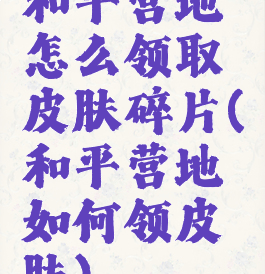 和平营地
怎么领取
皮肤碎片(
和平营地
如何领皮
肤)